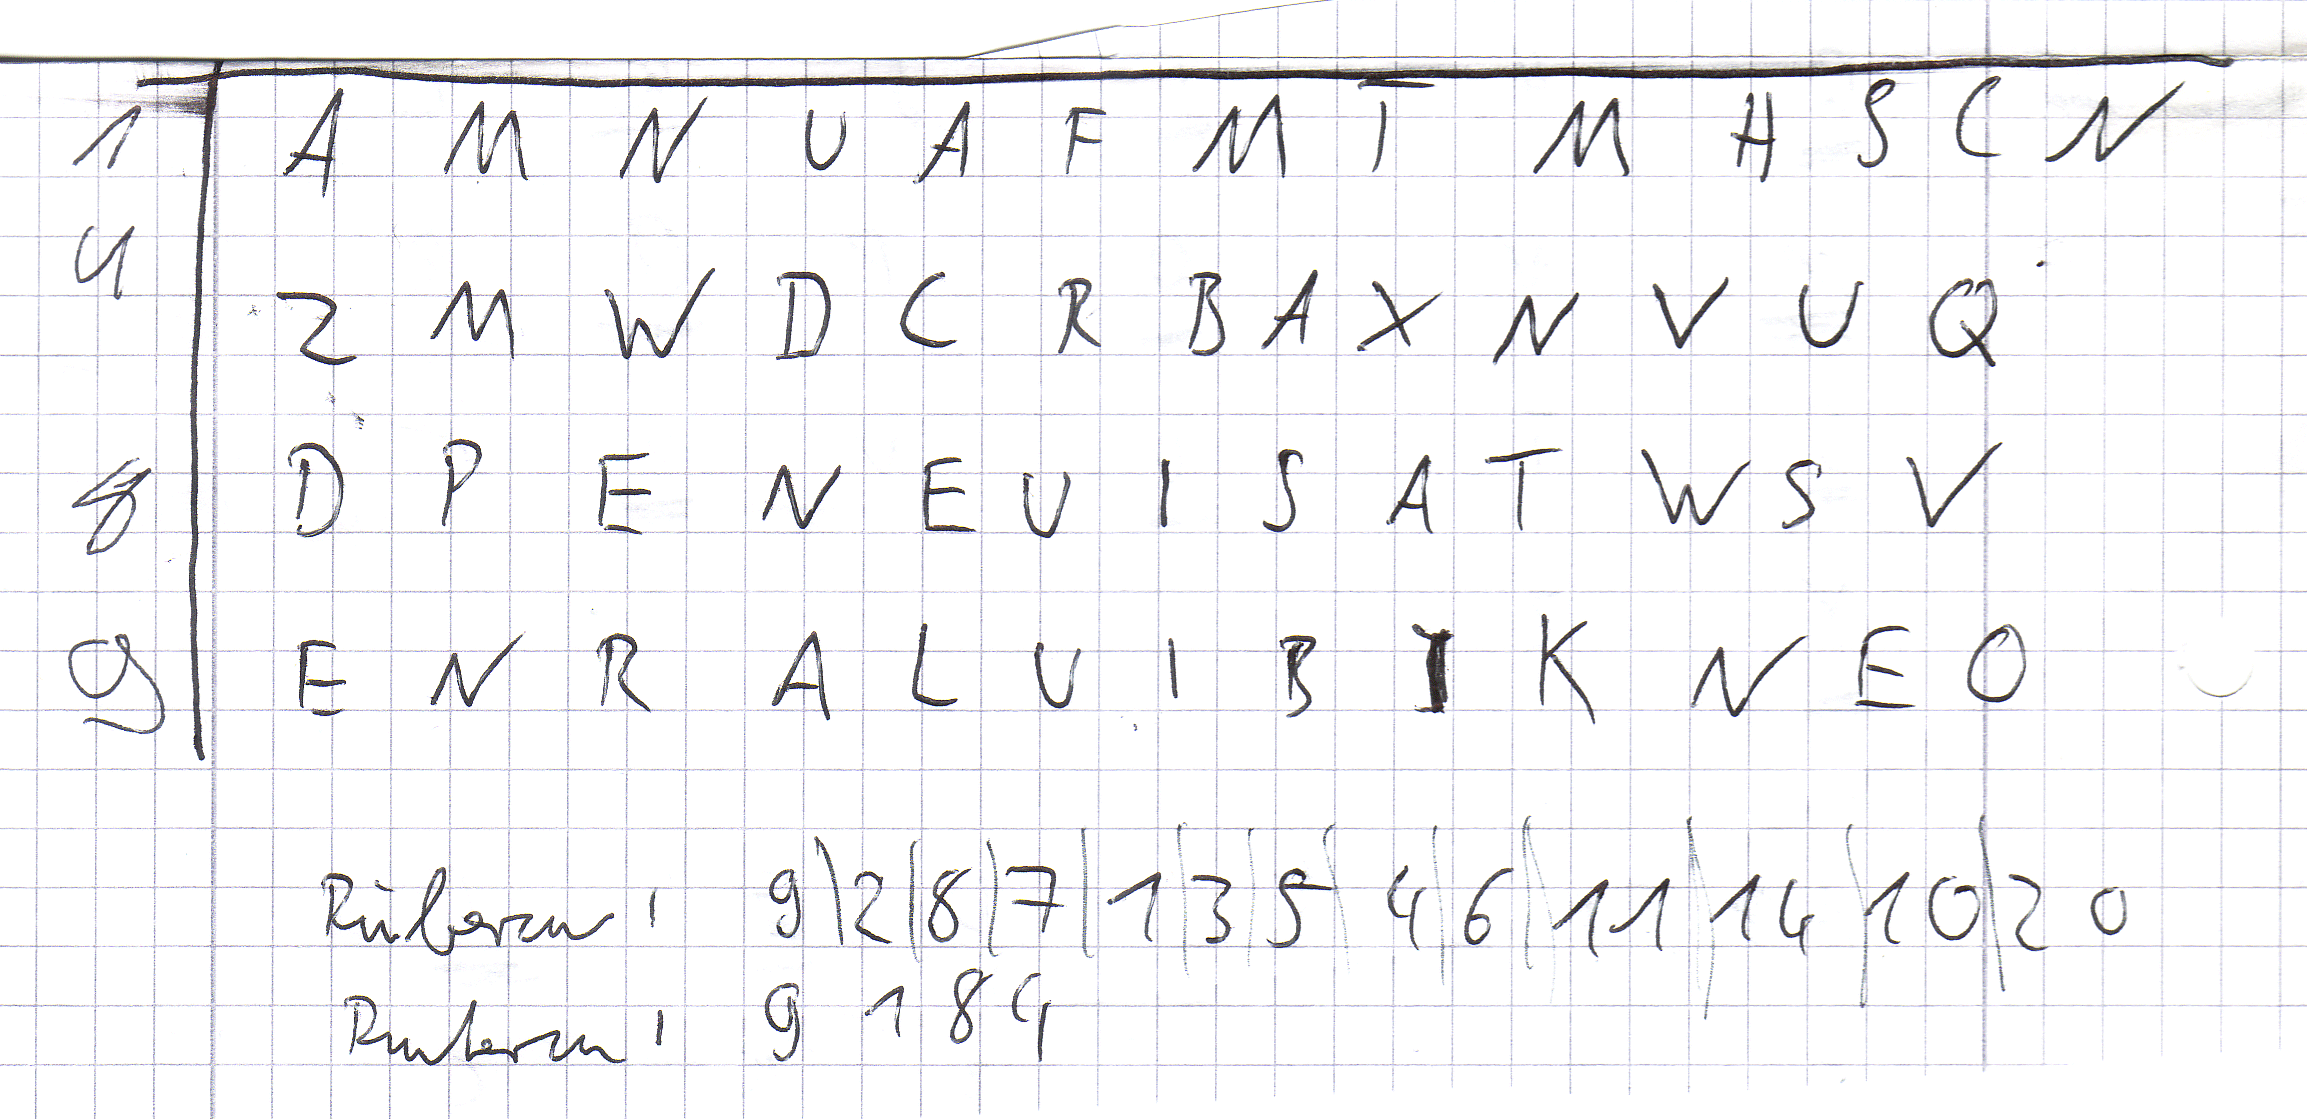 1 A M N U A F M T M H S C N
4 Z M W D C R B A X N V U Q
8 D P E N E U I S A T W S V
9 E N R A L U I B I K N E O
Rüberzu: 9|2|8|7|1|3|5|4|6|11|14|10|20
Runterzu: 9 1 8 4